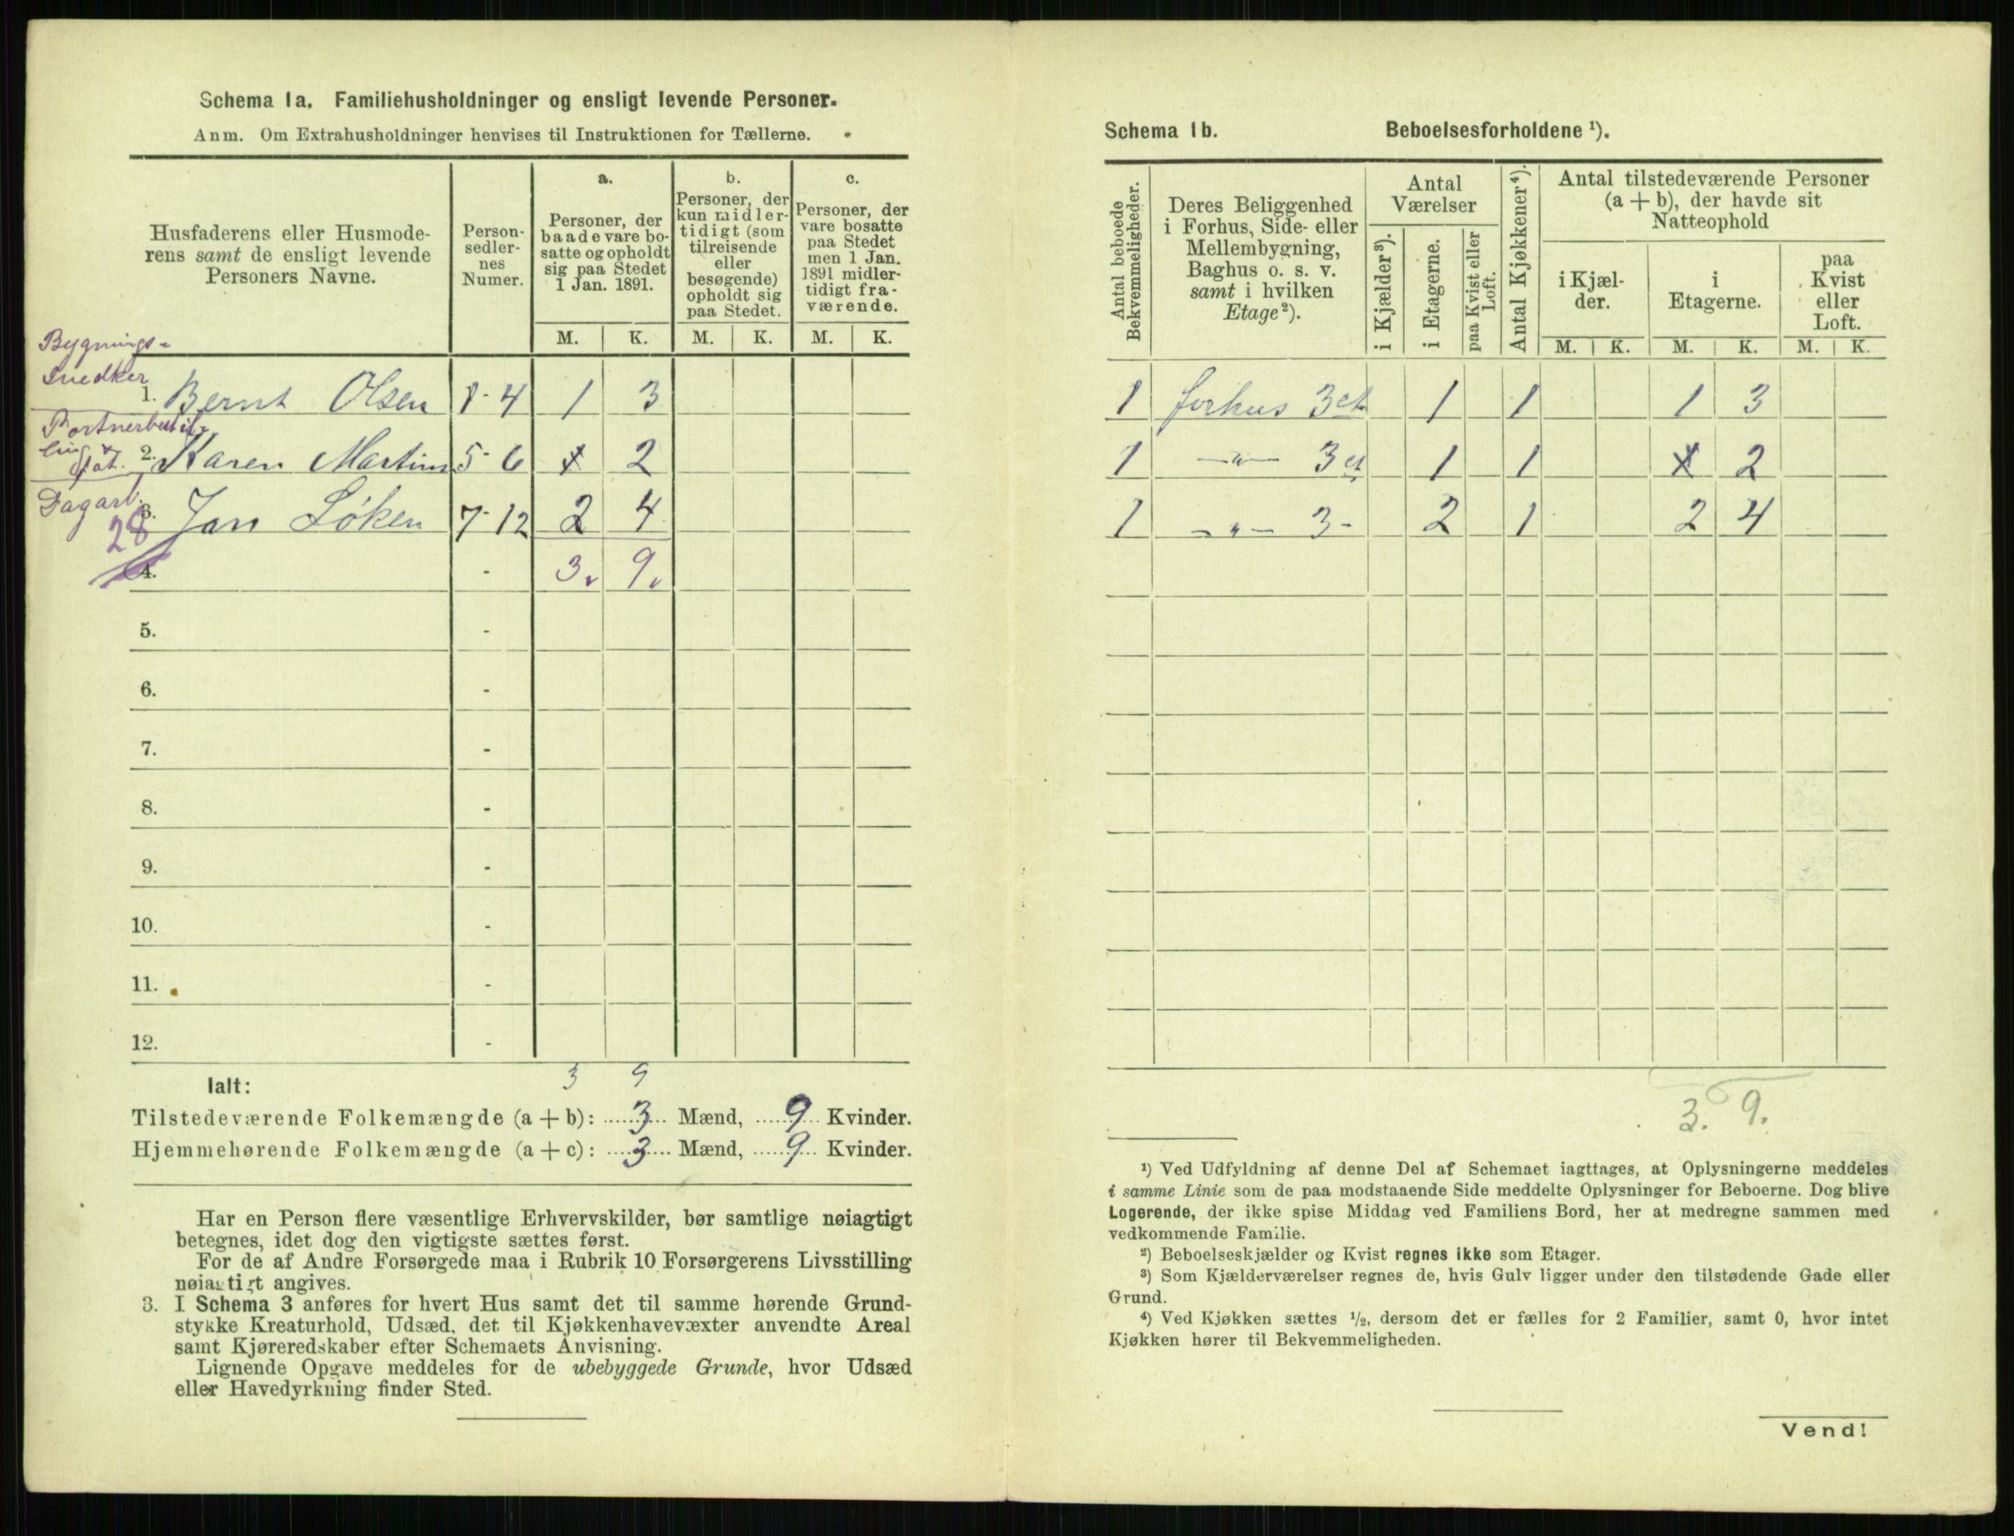 Schema 1a. Familiehusholdninger og ensligt levende Personer.
Anm. Om Extrahusholdninger henvises til Instruktionen for Tællerne.
Husfaderens eller Husmode-
rens samt de ensligt levende
Personers Navne.
Person-
sedler-
nes
Numer.
a.
Personer, der
baade vare bo-
satte og opholdt
sig paa Stedet
1 Jan. 1891.
b.
Personer, der
kun midler-
tidigt (som
tilreisende
eller
besøgende)
opholdt sig
paa Stedet.
c.
Personer, der
vare bosatte
paa Stedet
men 1 Jan.
1891 midler-
tidigt fra-
værende.
M. K. M. K. M. K.
Bygnings-
Snedker
1. Bernt Olsen 1-4 1 3
2. Karen Martins 5-6 2
Dagarb.
3. Jan Løken 7-12 2 4
28
4. - 3. 9.
5. -
6. -
7. -
8. -
9. -
10. -
11. -
12. -
3 9
Ialt:
Tilstedeværende Folkemængde (a+b): 3 Mænd, 9 Kvinder.
Hjemmehørende Folkemængde (a+c): 3 Mænd, 9 Kvinder.
Har en Person flere væsentlige Erhvervskilder, bør samtlige nøiagtigt
betegnes, idet dog den vigtigste sættes først.
For de af Andre Forsørgede maa i Rubrik 10 Forsørgerens Livsstilling
nøiagtigt angives.
3. I Schema 3 anføres for hvert Hus samt det til samme hørende Grund-
stykke Kreaturhold, Udsæd, det til Kjøkkenhavevæxter anvendte Areal
samt Kjøreredskaber efter Schemaets Anvisning.
Lignende Opgave meddeles for de ubebyggede Grunde, hvor Udsæd
eller Havedyrkning finder Sted.
Schema 1b. Beboelsesforholdene ¹).
Antal beboede
Bekvemmeligheder.
Deres Beliggenhed
i Forhus, Side- eller
Mellembygning,
Baghus o. s. v.
samt i hvilken
Etage²).
Antal
Værelser
i Kjælder³).
i Etagerne.
paa Kvist eller
Loft.
Antal Kjøkkener⁴).
Antal tilstedeværende Personer
(a + b), der havde sit
Natteophold
i Kjæl-
der.
i
Etagerne.
paa
Kvist
eller
Loft.
M. K. M. K. M. K.
1 forhus 3et 1 1 1 3
1 —„— 3et 1 1 2
1 —„— 3- 2 1 2 4
3. 9.
¹) Ved Udfyldning af denne Del af Schemaet iagttages, at Oplysningerne meddeles
i samme Linie som de paa modstaaende Side meddelte Oplysninger for Beboerne. Dog blive
Logerende, der ikke spise Middag ved Familiens Bord, her at medregne sammen med
vedkommende Familie.
²) Beboelseskjælder og Kvist regnes ikke som Etager.
³) Som Kjælderværelser regnes de, hvis Gulv ligger under den tilstødende Gade eller
Grund.
⁴) Ved Kjøkken sættes ½, dersom det er fælles for 2 Familier, samt 0, hvor intet
Kjøkken hører til Bekvemmeligheden.
Vend!